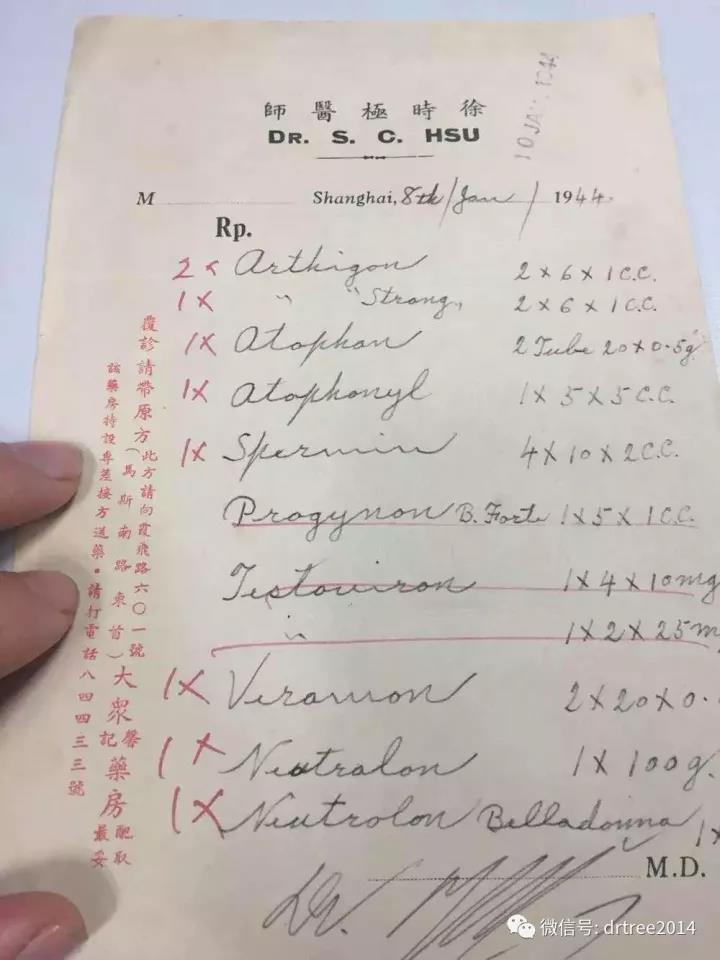 徐時極醫師
DR. S. C. HSU
10 JAN. 1944
M Shanghai, 8th/Jan/1944.
Rp.
2× Arthigon 2×6×1 C.C.
1× " "Strong" 2×6×1 C.C.
1× Atophan 2 Tube 20×0.5g
1× Atophanyl 1×5×5 C.C.
1× Spermin 4×10×2 C.C.
Progynon B. Forte 1×5×1 C.C.
Testoviron 1×4×10mg
" 1×2×25m
1× Veramon 2×20×0.
1× Neutralon 1×100g.
1× Neutrolon Belladonna 1×
Dr.
M.D.
覆診請帶原方
此方請向霞飛路六〇一號
(馬斯南路東首)
大眾馨記藥房配取最妥
該藥房特設專差接方送藥。請打電話八四四三三號
微信号: drtree2014